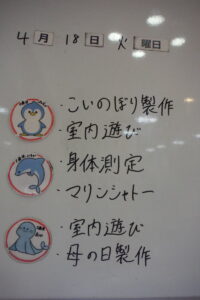 4月18日火曜日
・こいのぼり製作
・室内遊び
・身体測定
・マリンシャトー
・室内遊び
・母の日製作